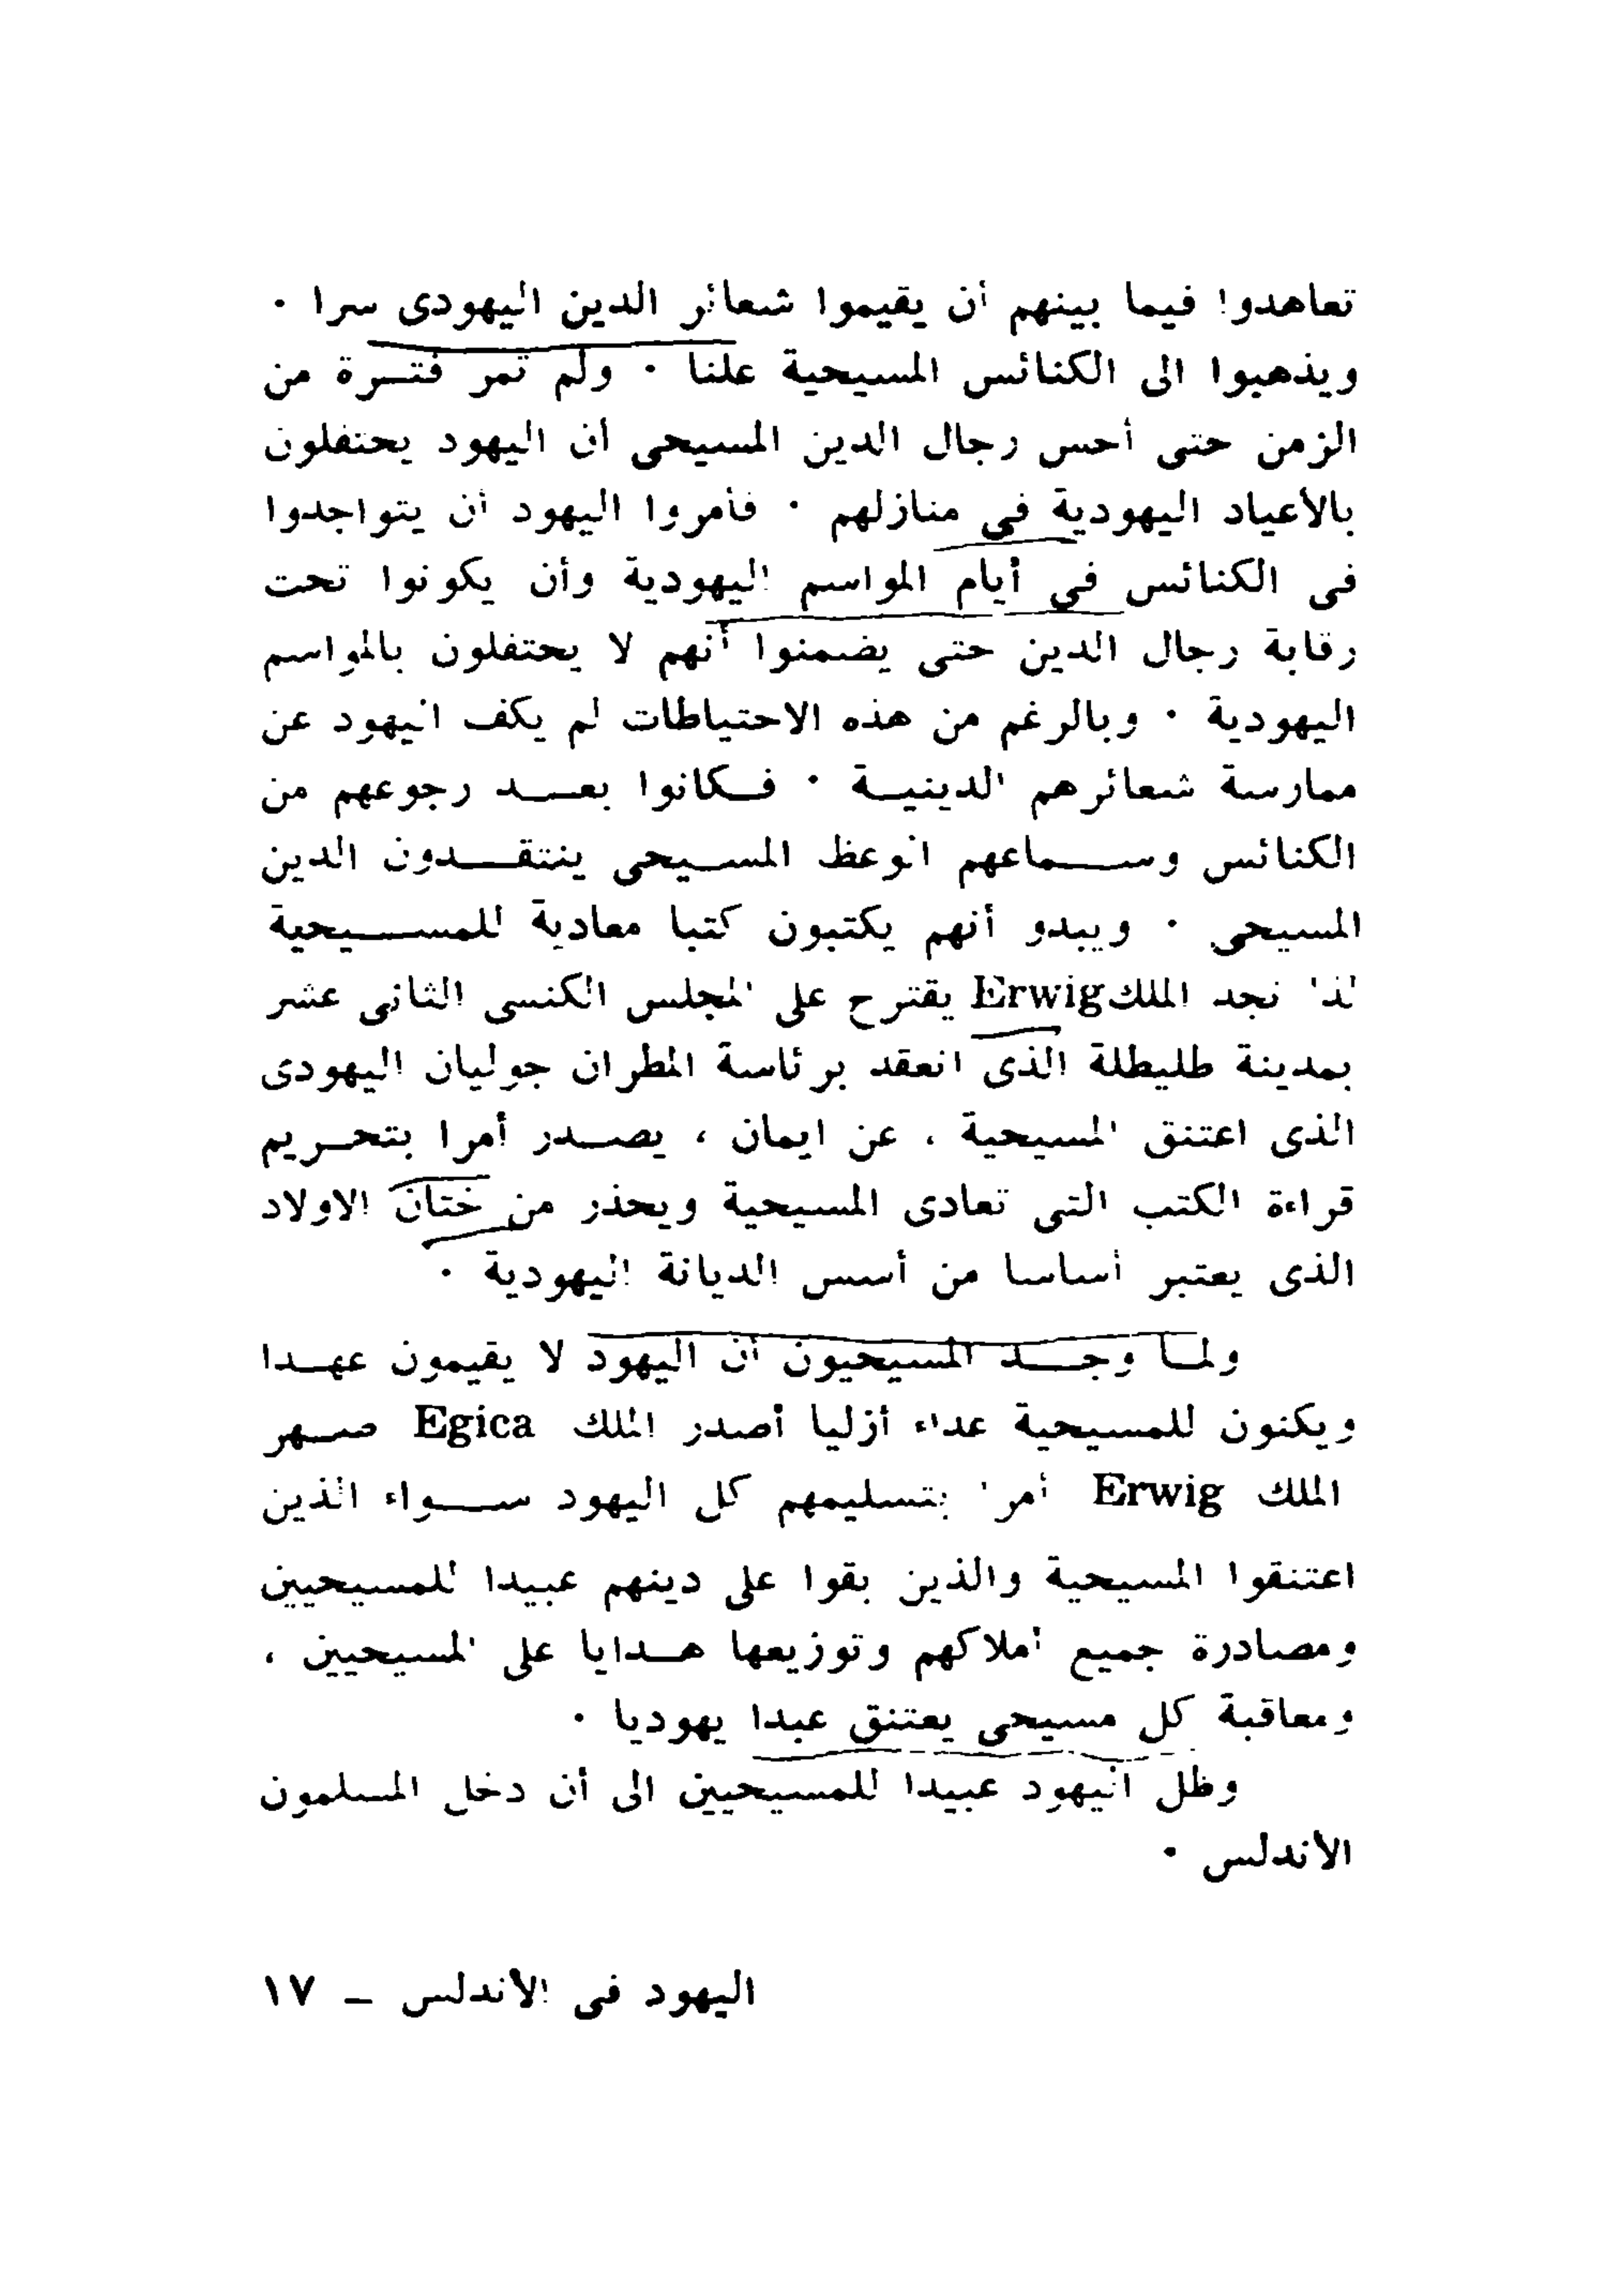 تعاهدوا فيما بينهم أن يقيموا شعائر الدين اليهودى سرا ٠
ويذهبوا الى الكنائس المسيحية علنا ٠ ولم تمر فترة من
الزمن حتى أحس رجال الدين المسيحى أن اليهود يحتفلون
بالأعياد اليهودية في منازلهم ٠ فأمروا اليهود أن يتواجدوا
فى الكنائس في أيام المواسم اليهودية وأن يكونوا تحت
رقابة رجال الدين حتى يضمنوا أنهم لا يحتفلون بالمواسم
اليهودية ٠ وبالرغم من هذه الاحتياطات لم يكف اليهود عن
ممارسة شعائرهم الدينية ٠ فكانوا بعد رجوعهم من
الكنائس وسماعهم الوعظ المسيحى ينتقدون الدين
المسيحى ٠ ويبدو أنهم يكتبون كتبا معادية للمسيحية
لذا نجد الملك Erwig يقترح على المجلس الكنسى الثانى عشر
بمدينة طليطلة الذى انعقد برئاسة المطران جوليان اليهودى
الذى اعتنق المسيحية ، عن ايمان ، يصدر أمرا بتحريم
قراءة الكتب التى تعادى المسيحية ويحذر من ختان الاولاد
الذى يعتبر أساسا من أسس الديانة اليهودية ٠
ولما وجد المسيحيون أن اليهود لا يقيمون عهدا
ويكنون للمسيحية عداء أزليا أصدر الملك Egica صهر
الملك Erwig أمرا بتسليمهم كل اليهود سواء الذين
اعتنقوا المسيحية والذين بقوا على دينهم عبيدا للمسيحيين
ومصادرة جميع أملاكهم وتوزيعها هدايا على المسيحيين ،
ومعاقبة كل مسيحى يعتنق عبدا يهوديا ٠
وظل اليهود عبيدا للمسيحيين الى أن دخل المسلمون
الأندلس ٠
اليهود فى الأندلس ـ ١٧